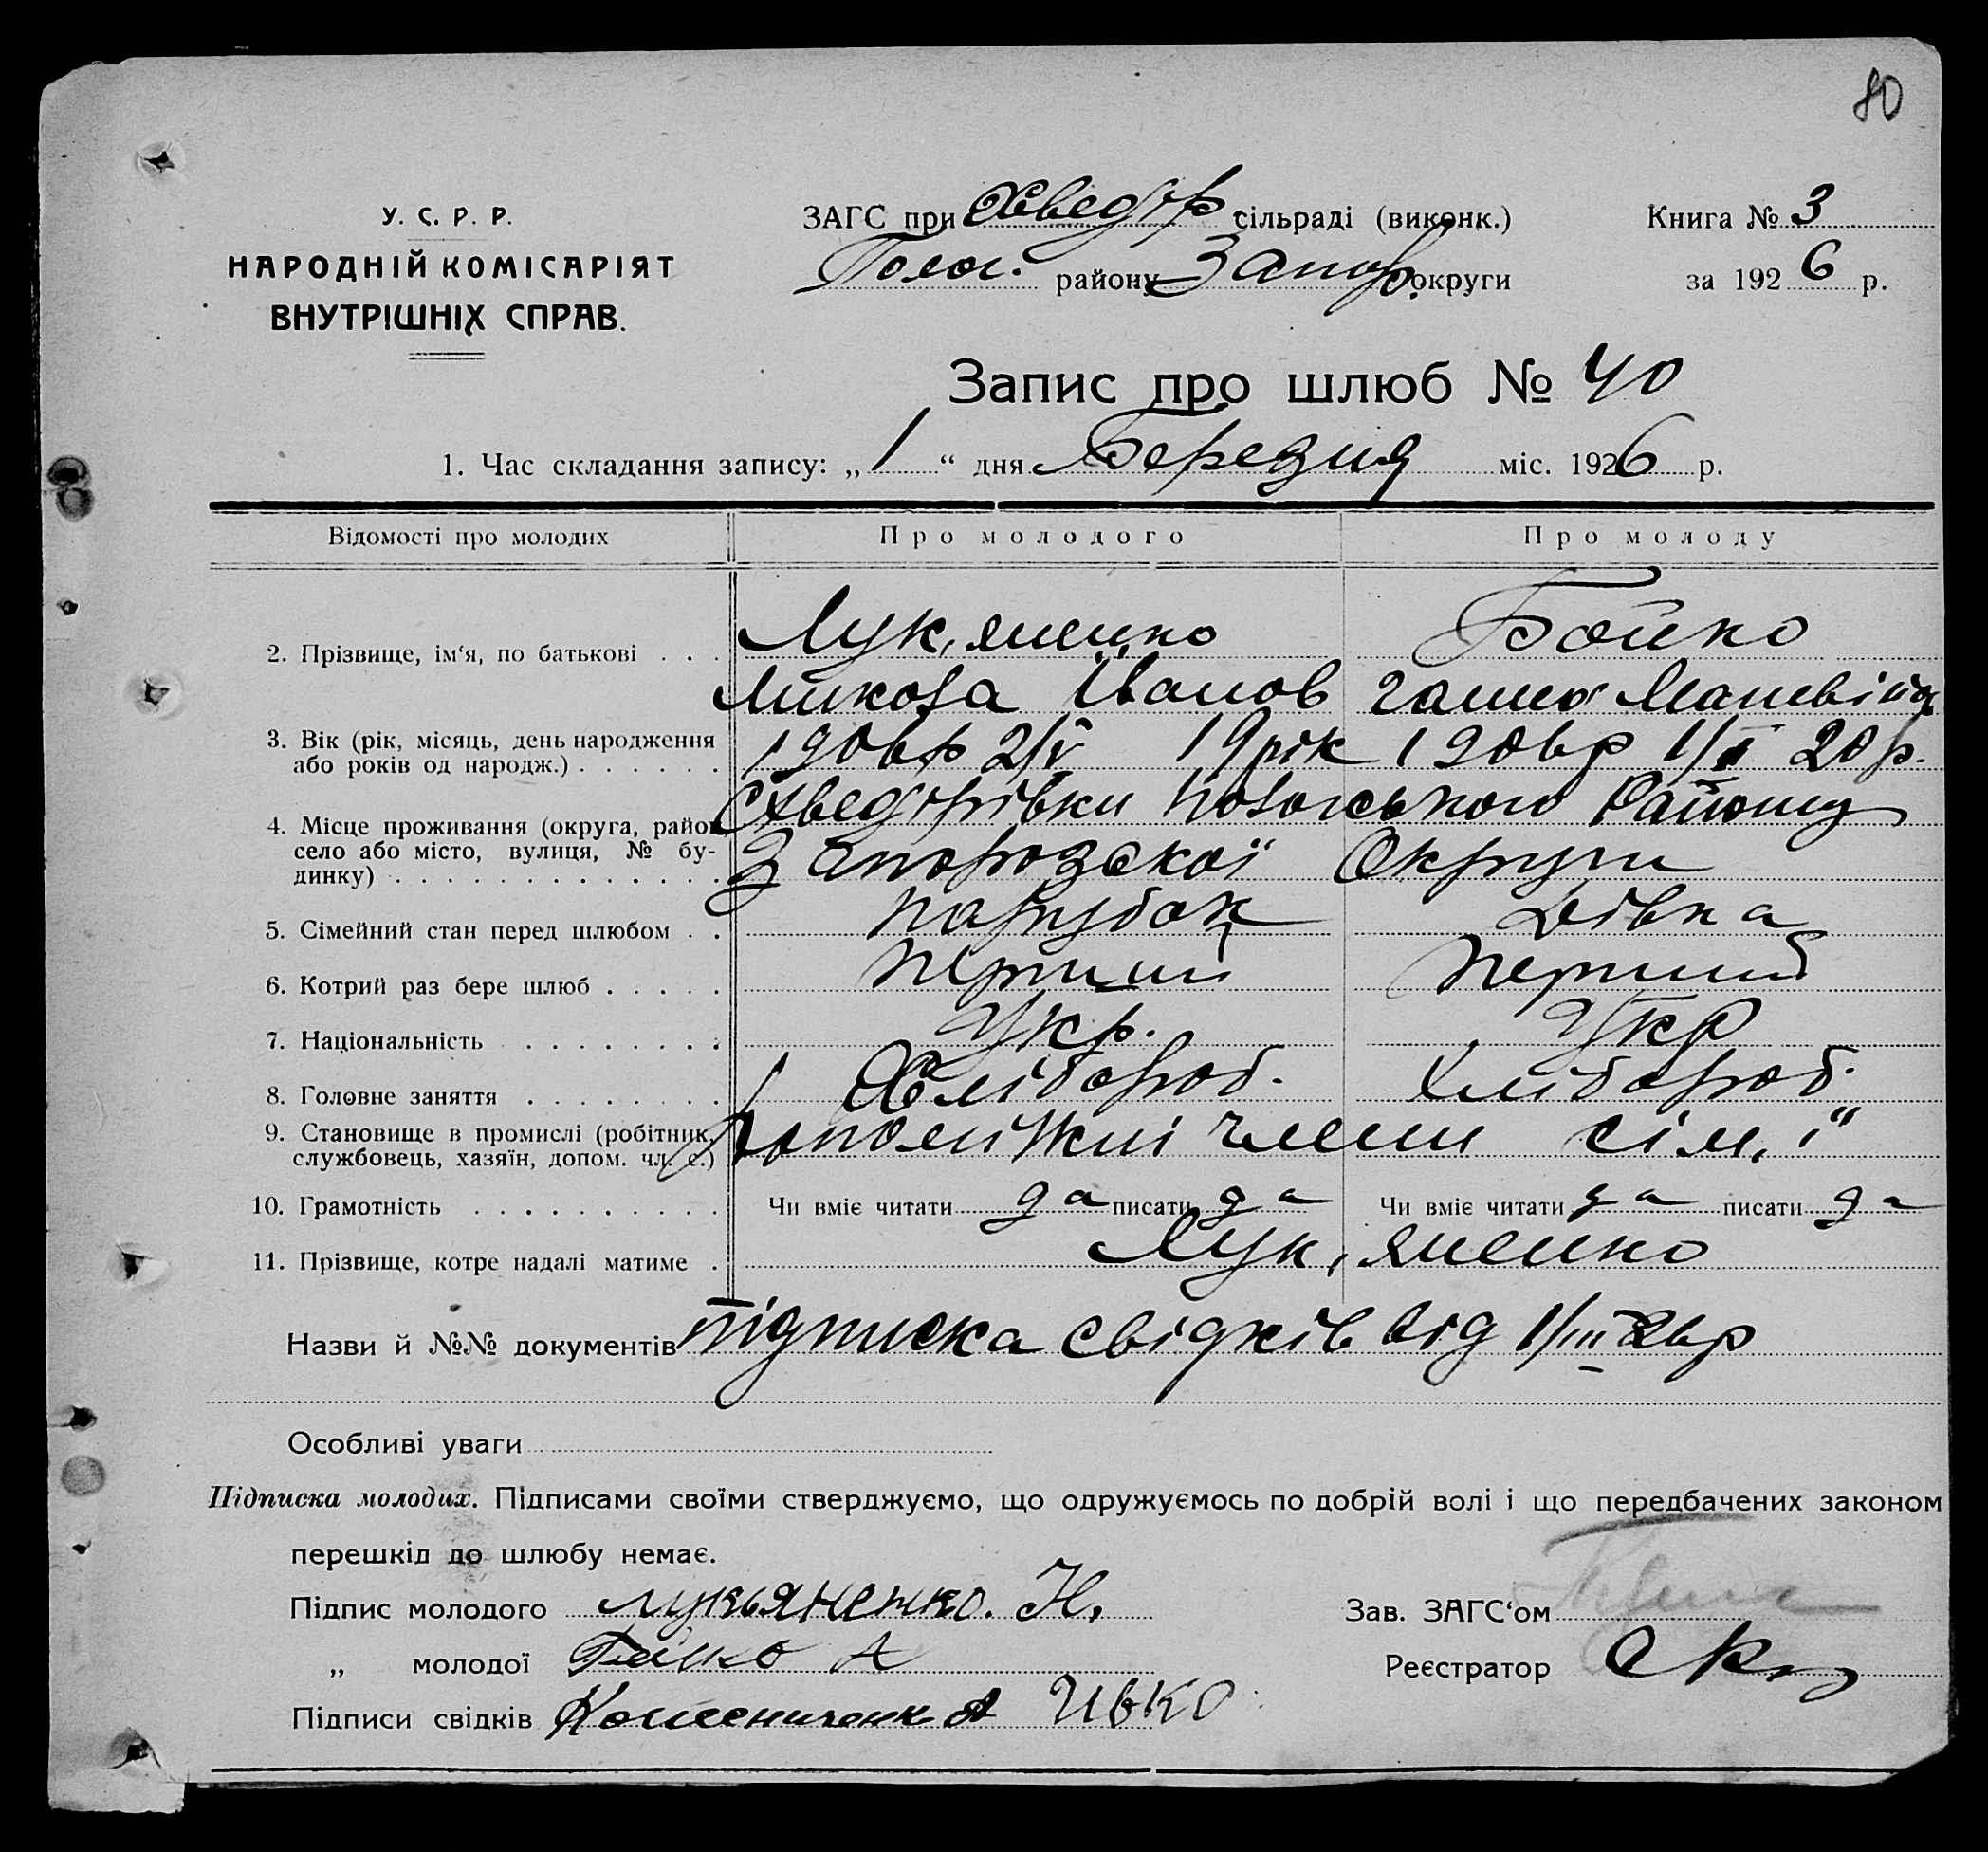 80
У. С. Р. Р.
НАРОДНІЙ КОМІСАРІЯТ
ВНУТРІШНІХ СПРАВ.
ЗАГС при Хведор сільраді (виконк.)
Полог. району Запор. округи
Книга № 3
за 1926 р.
Запис про шлюб № 40
1. Час складання запису: „ 1 “ дня Березня міс. 1926 р.
Відомості про молодих Про молодого Про молоду
2. Прізвище, ім‘я, по батькові . . . Лук,яненко Бойко
Микола Іванов
3. Вік (рік, місяць, день народження
або років од народж.) . . . . . . 1906 р 2/V 19 рік 1906 р 20 р.
4. Місце проживання (округа, район
село або місто, вулиця, № бу-
динку) . . . . . . . . . . . . . . Хведорівки Пологського Району
Запорозської Округи
5. Сімейний стан перед шлюбом . . парубок Дівка
6. Котрий раз бере шлюб . . . . . перший перший
7. Національність . . . . . . . . Укр. Укр
8. Головне заняття . . . . . . . . Хлібороб. Хлібороб.
9. Становище в промислі (робітник,
службовець, хазяїн, допом. чл. с.) Допоміжні члени сім,ї
10. Грамотність . . . . . . . . . . Чи вміє читати да писати да Чи вміє читати да писати да
11. Прізвище, котре надалі матиме . Лук,яненко
Назви й №№ документів підписка свідків від 1/III 26 р
Особливі уваги
Підписка молодих. Підписами своїми стверджуємо, що одружуємось по добрій волі і що передбачених законом
перешкід до шлюбу немає.
Підпис молодого Лукьяненко. Н.
Зав. ЗАГС‘ом
„ молодої Бойко А
Реєстратор
Підписи свідків Колесниченк А Ивко